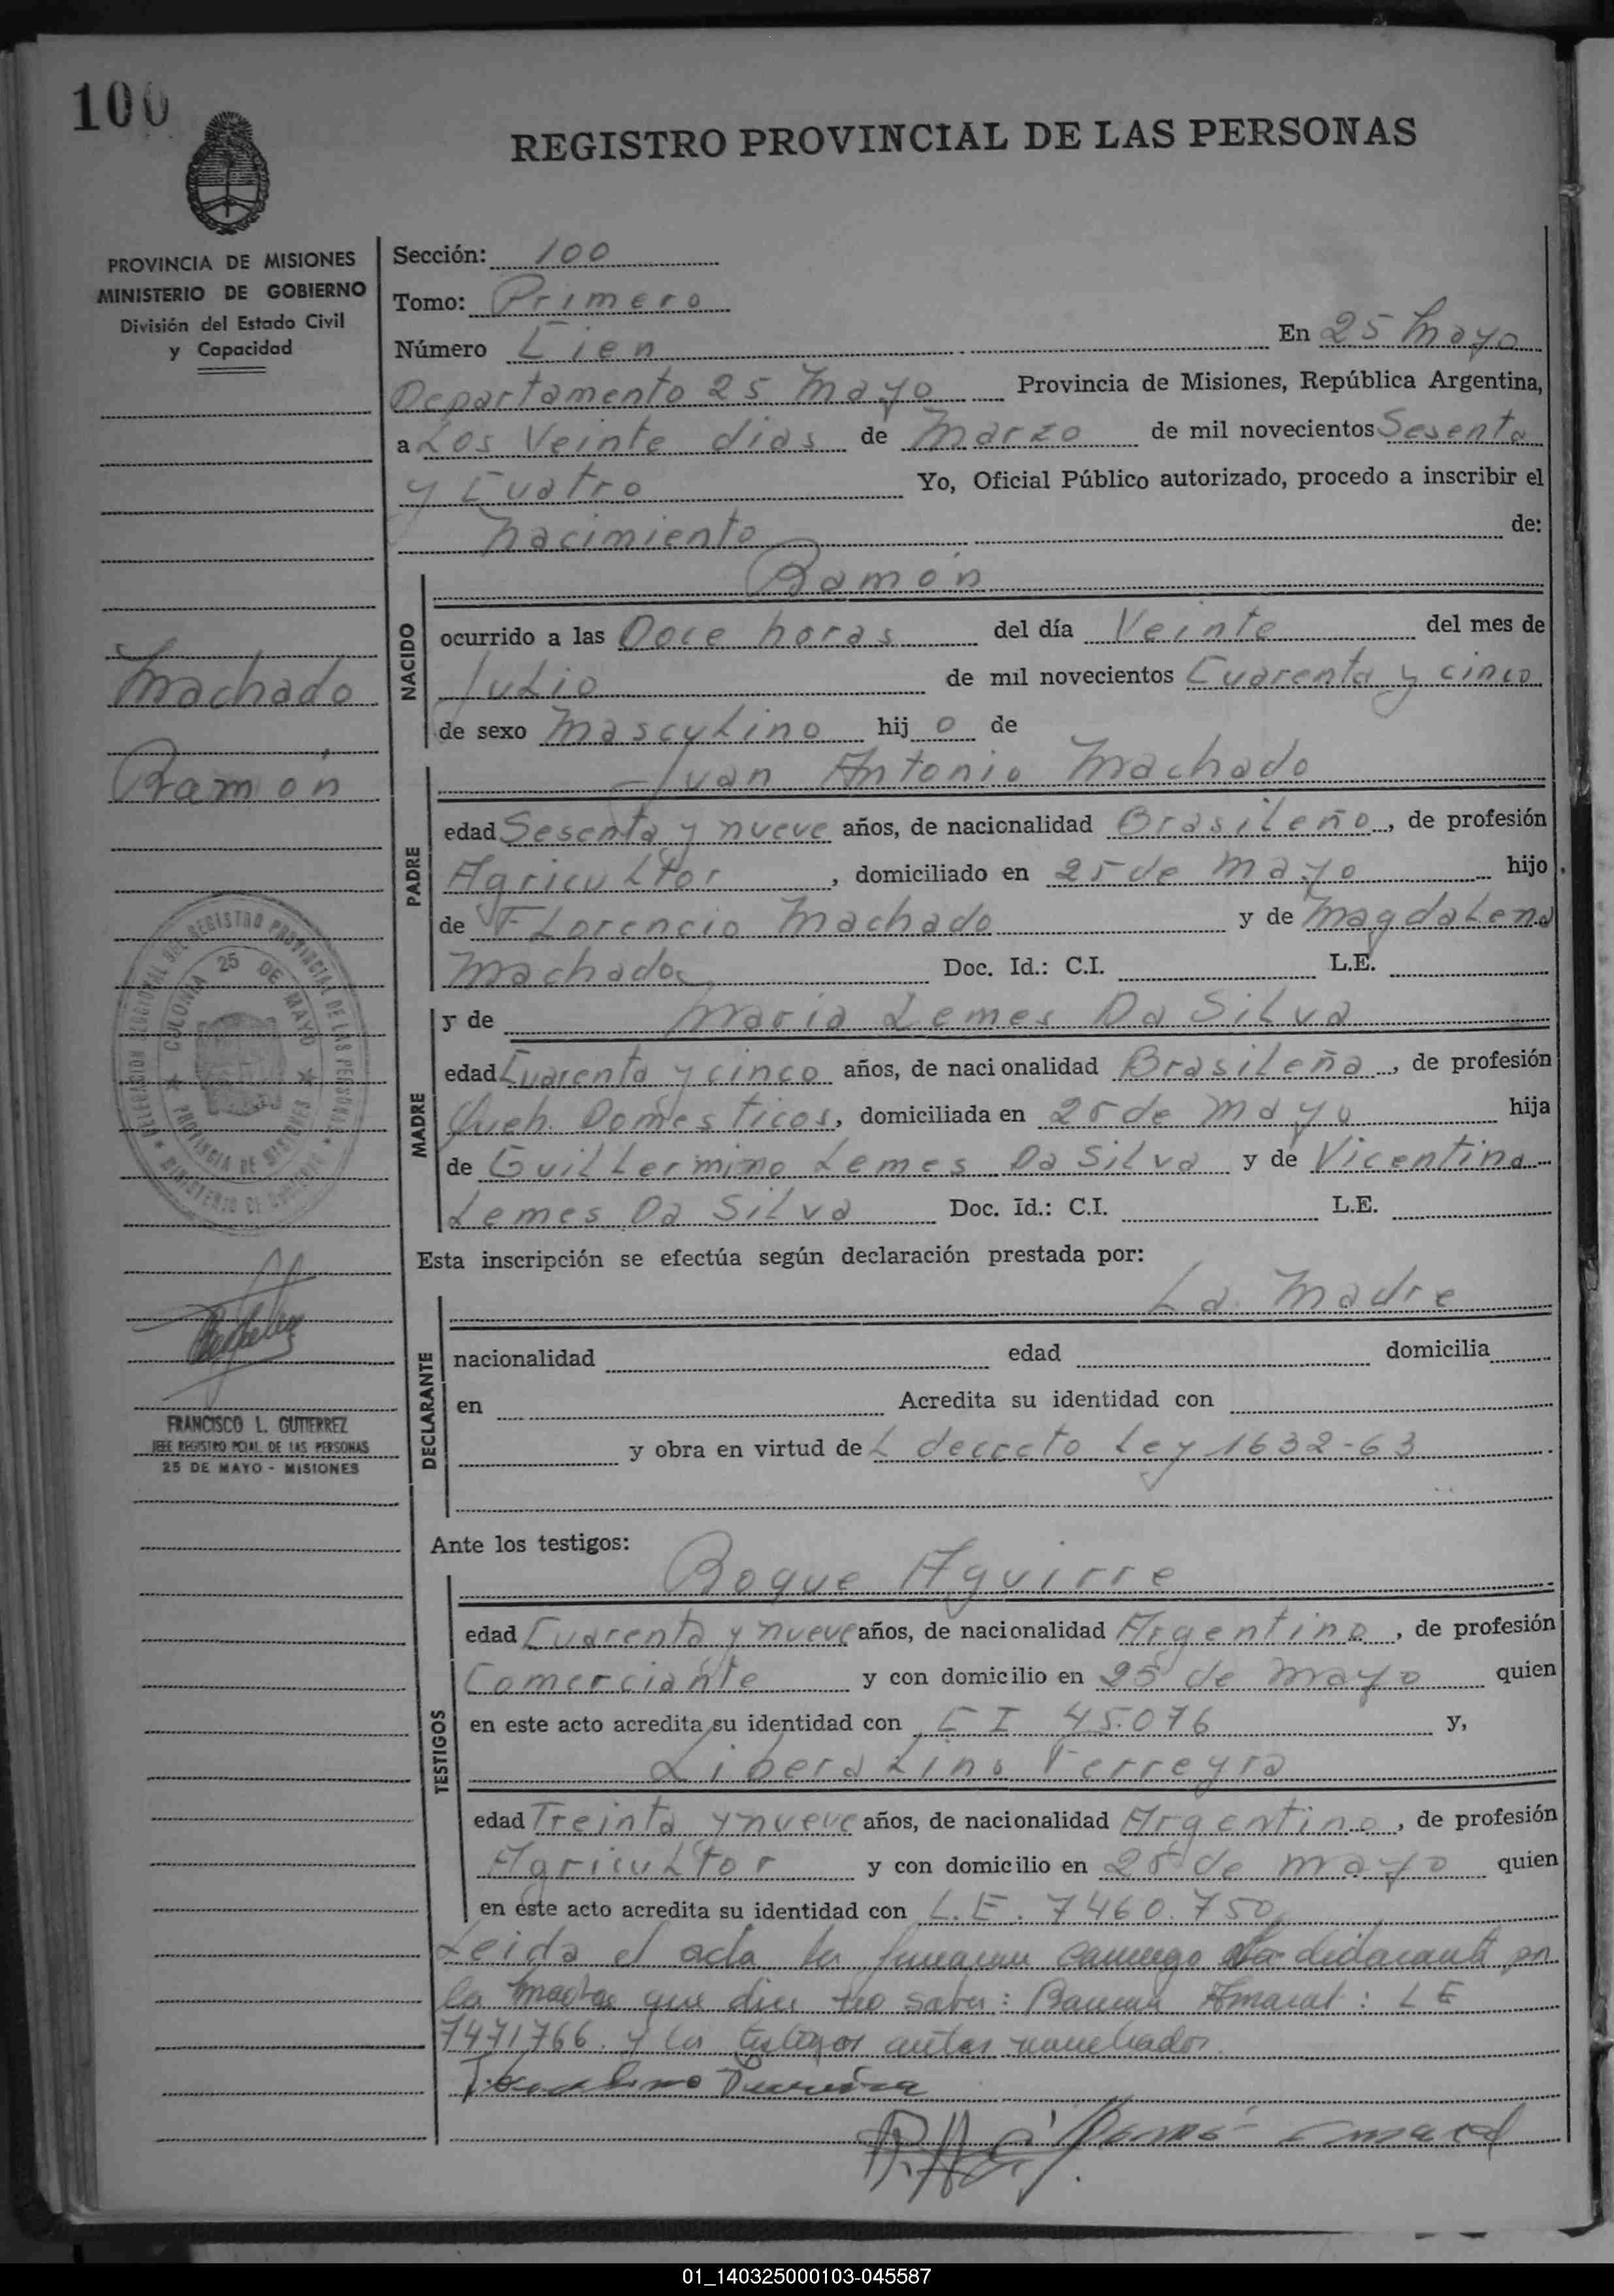 100
REGISTRO PROVINCIAL DE LAS PERSONAS
PROVINCIA DE MISIONES
MINISTERIO DE GOBIERNO
División del Estado Civil
y Capacidad
Sección: 100
Tomo: Primero
Número Cien En 25 Mayo
Departamento 25 Mayo Provincia de Misiones, República Argentina,
a Los Veinte dias de Marzo de mil novecientos Sesenta
y Cuatro Yo, Oficial Público autorizado, procedo a inscribir el
Nacimiento de:
Ramón
NACIDO
ocurrido a las Doce horas del día Veinte del mes de
Julio de mil novecientos Cuarenta y cinco
de sexo Masculino hij o de
Machado
Ramón
Juan Antonio Machado
PADRE
edad Sesenta y nueve años, de nacionalidad Brasileño, de profesión
Agricultor, domiciliado en 25 de Mayo hijo
de Florencio Machado y de Magdalena
Machado Doc. Id.: C.I. L.E.
y de Maria Lemes Da Silva
MADRE
edad Cuarenta y cinco años, de nacionalidad Brasileña, de profesión
Queh. Domesticos, domiciliada en 25 de Mayo hija
de Guillermino Lemes Da Silva y de Vicentina
Lemes Da Silva Doc. Id.: C.I. L.E.
DELEGACION REGIONAL DEL REGISTRO PROVINCIAL DE LAS PERSONAS
COLONIA 25 DE MAYO
PROVINCIA DE MISIONES
MINISTERIO DE GOBIERNO
Esta inscripción se efectúa según declaración prestada por:
La Madre
DECLARANTE
nacionalidad edad domicilia
en Acredita su identidad con
y obra en virtud del decreto Ley 1632-63
FRANCISCO L. GUTIERREZ
JEFE REGISTRO PCIAL. DE LAS PERSONAS
25 DE MAYO - MISIONES
Ante los testigos:
Roque Aguirre
TESTIGOS
edad Cuarenta y nueve años, de nacionalidad Argentino, de profesión
Comerciante y con domicilio en 25 de Mayo quien
en este acto acredita su identidad con C I 45.076 y,
Liberalino Ferreyra
edad Treinta y nueve años, de nacionalidad Argentino, de profesión
Agricultor y con domicilio en 25 de Mayo quien
en este acto acredita su identidad con L.E. 7460.750
Leida el acta la firmaron conmigo por
la que dice no saber: Ramon Amaral: LE
7471766. y los testigos antes nombrados.
01_140325000103-045587